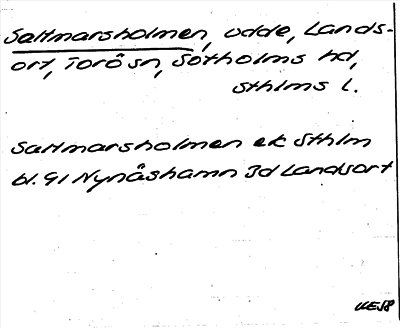 Saltmarsholmen, udde, Lands-
ort, Torö sn, Sotholms hd,
Sthlms l.
Saltmarsholmen ek Sthlm
bl. 91 Nynäshamn 3d Landsort